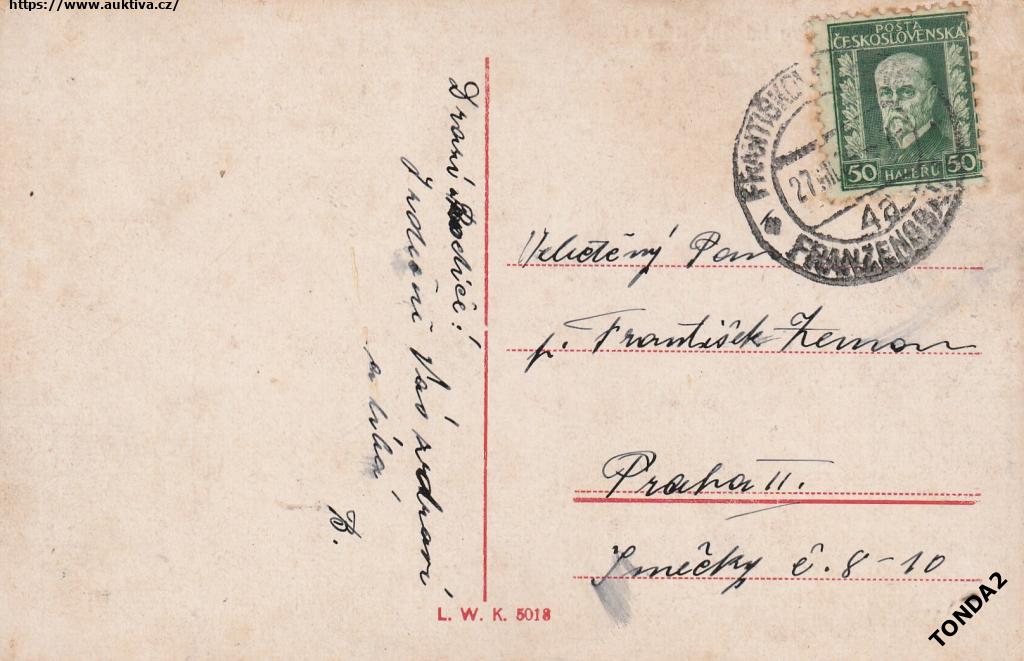 https://www.auktiva.cz/
POSTA
ČESKOSLOVENSKÁ
50 HALÉŘŮ 50
27.VIII
4a
FRANZENSBAD
Drazí Rodiče!
Srdečně Vás zdraví
a líbá
B.
Velectěný Pan
p. František Zeman
Praha II.
Smečky č. 8-10
L. W. K. 5018
TONDA2